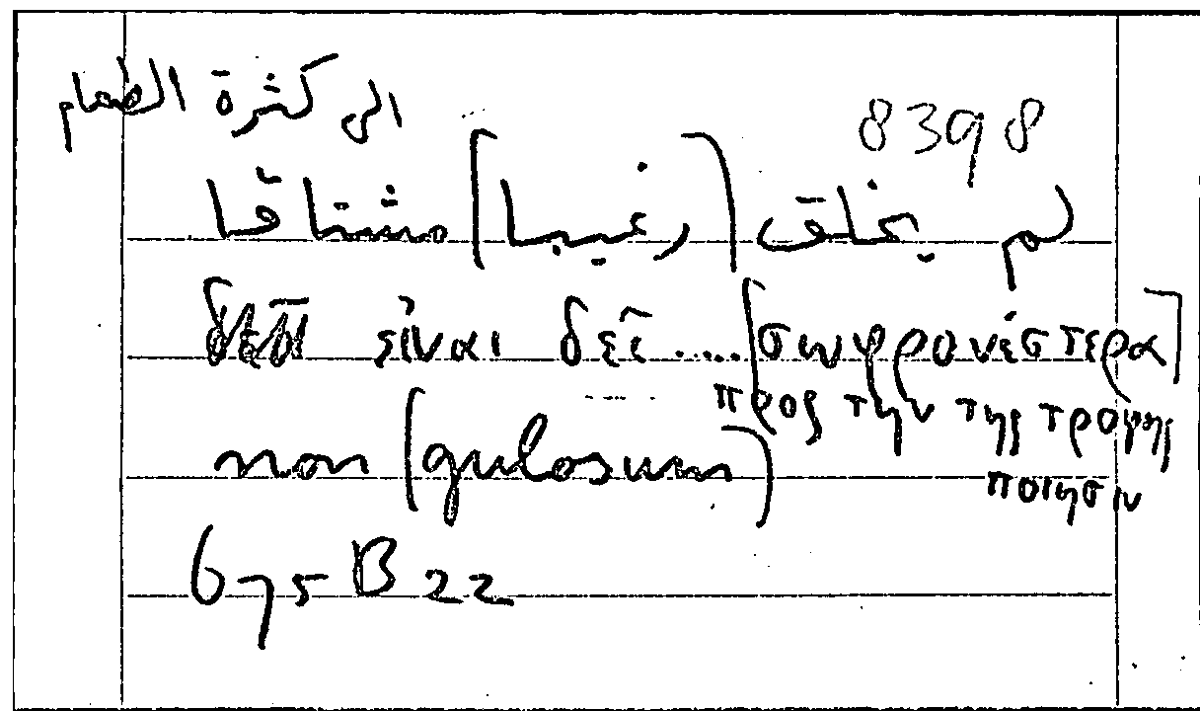 8398
الى كثرة الطعام
لم يخلق (رغيبا) مشتاقا
εἶναι δεῖ .... [σωφρονέστερα]
προς την της τροφης
ποιησιν
non (gulosum)
675 B 22